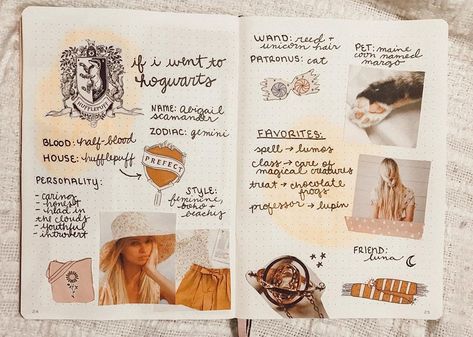 if i went to
hogwarts
HUFFLEPUFF
NAME: Abigail
scamander
ZODIAC: gemini
BLOOD: half-blood
HOUSE: hufflepuff
PREFECT
PERSONALITY:
- caring
- honest
- head in
the clouds
- youthful
- introvert
STYLE:
feminine,
boho +
beachy
24
WAND: reed +
unicorn hair
PATRONUS: cat
PET: maine
coon named
margo
FAVORITES:
spell → lumos
class → care of
magical creatures
treat → chocolate
frogs
professor → lupin
FRIEND:
luna
25